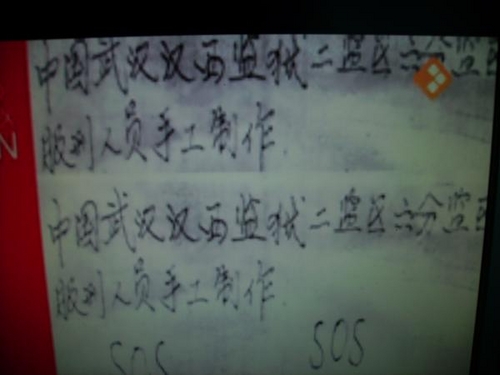 中国武汉汉西监狱二监区六分监
服刑人员手工制作.
N
中国武汉汉西监狱二监区六分监
服刑人员手工制作.
SOS SOS